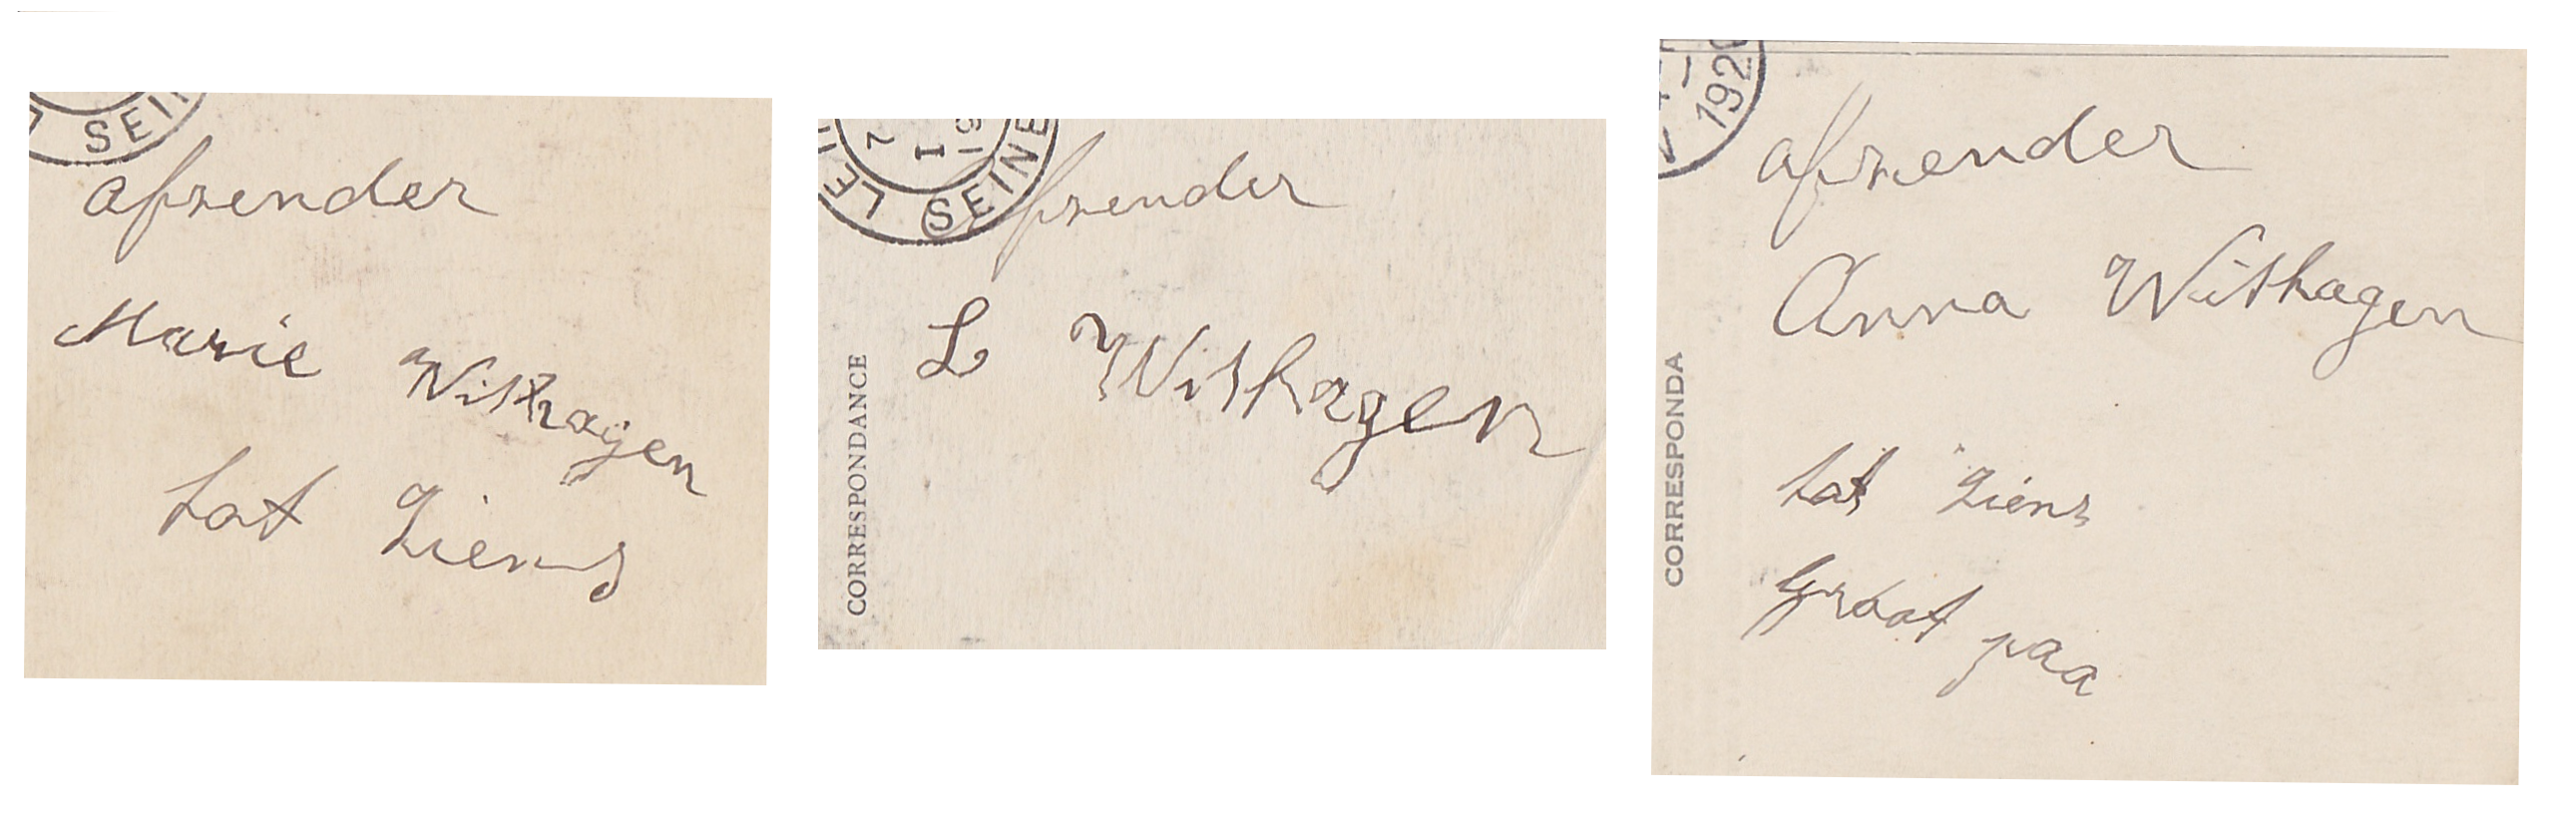 SEI
afzender
Marie Withagen
tot Ziens
LE SEINE
afzender
L Withagen
CORRESPONDANCE
192
afzender
Anna Withagen
CORRESPONDA
tot Ziens
Groot paa